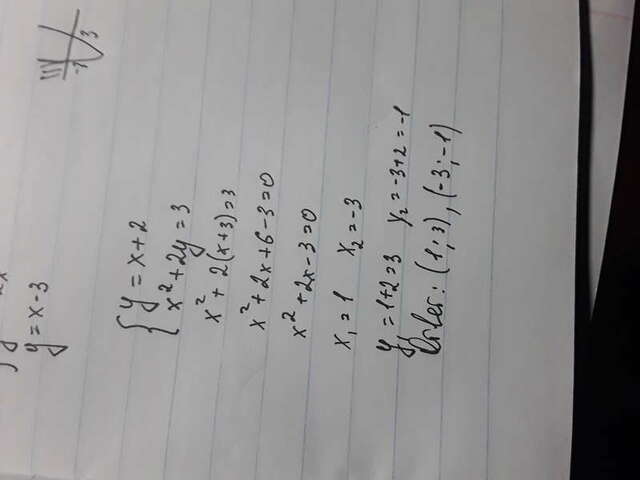 y = x - 3
{ y = x + 2
x² + 2y = 3
x² + 2(x+3) = 3
x² + 2x + 6 - 3 = 0
x² + 2x - 3 = 0
x₁ = 1 x₂ = -3
y₁ = 1+2=3 y₂ = -3+2 = -1
Ответ: (1; 3), (-3; -1)
-1 3